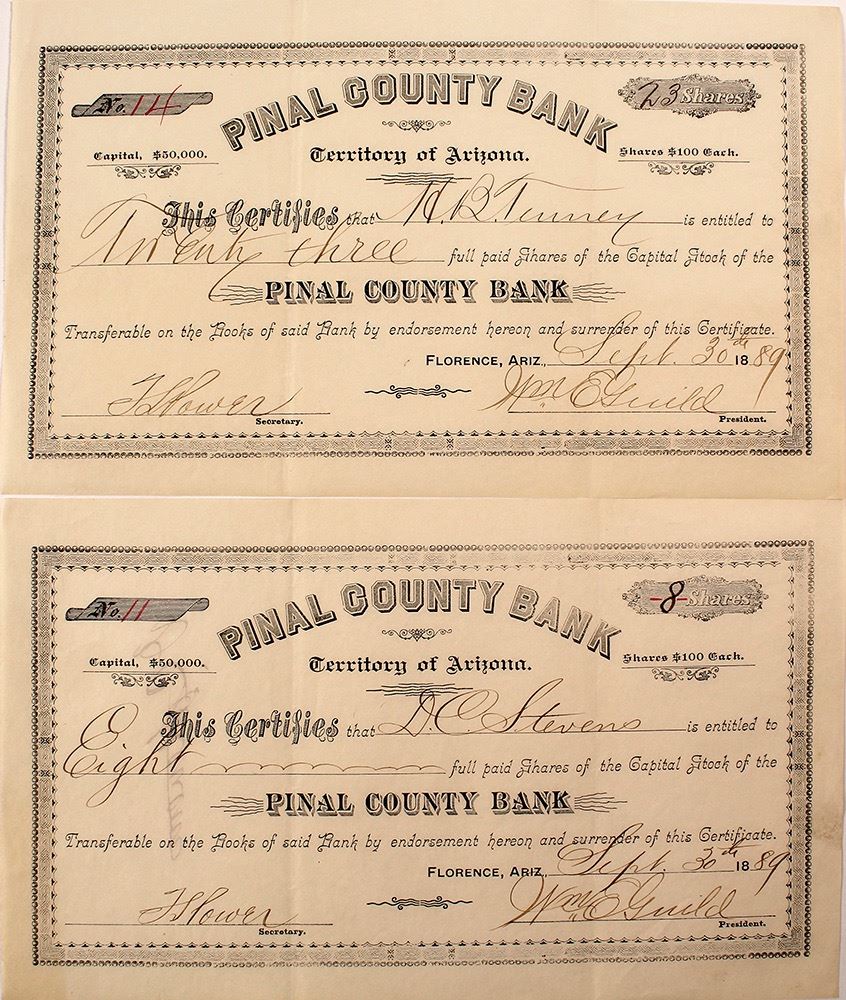 No. 14
PINAL COUNTY BANK
23 Shares
Capital, $50,000.
Territory of Arizona.
Shares $100 Each.
This Certifies that H. B. Tenney is entitled to
Twenty three full paid Shares of the Capital Stock of the
PINAL COUNTY BANK
Transferable on the Books of said Bank by endorsement hereon and surrender of this Certificate.
FLORENCE, ARIZ., Sept. 30th 1889
Wm E Guild
Secretary.
President.
No. 11
PINAL COUNTY BANK
-8- Shares
Capital, $50,000.
Territory of Arizona.
Shares $100 Each.
This Certifies that D. C. Stevens is entitled to
Eight full paid Shares of the Capital Stock of the
PINAL COUNTY BANK
Transferable on the Books of said Bank by endorsement hereon and surrender of this Certificate.
FLORENCE, ARIZ., Sept. 30th 1889
Wm E Guild
Secretary.
President.